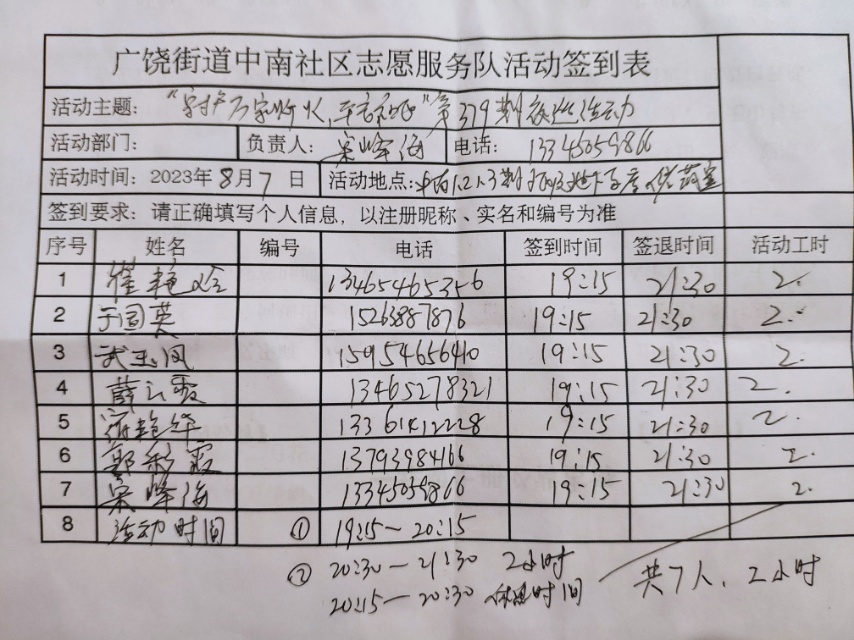 广饶街道中南社区志愿服务队活动签到表
活动主题：“守护万家灯火，平安 ”第379期夜巡活动
活动部门： 负责人：宋峰海 电话：13345059866
活动时间：2023年8月7日 活动地点：中南1.2.3期 地下车库
签到要求：请正确填写个人信息，以注册昵称、实名和编号为准
序号 姓名 编号 电话 签到时间 签退时间 活动工时
1 崔艳玲 13465465356 19:15 21:30 2.
2 于国英 15268887876 19:15 21:30 2.
3 武玉凤 15954656410 19:15 21:30 2.
4 薛云霞 13465278321 19:15 21:30 2.
5 艳华 19:15 21:30 2.
6 郭彩霞 13793984166 19:15 21:30 2.
7 宋峰海 13345059866 19:15 21:30 2.
8 活动时间 ① 19:15－20:15
② 20:30－21:30 2小时
20:15－20:30 休息时间
共7人，2小时